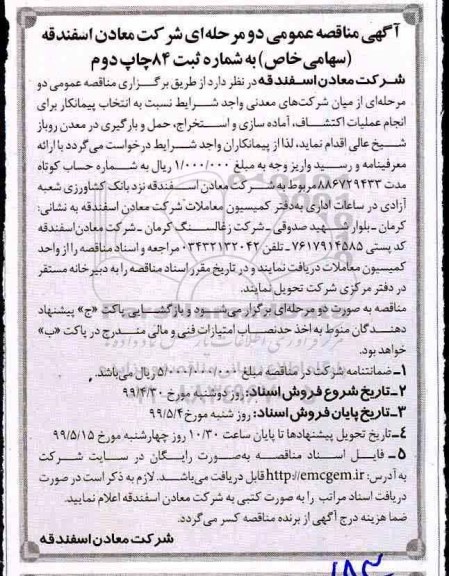 آگهی مناقصه عمومی دو مرحله‌ای شرکت معادن اسفندقه
(سهامی خاص) به شماره ثبت ۸۴ چاپ دوم
شرکت معادن اسفندقه در نظر دارد از طریق برگزاری مناقصه عمومی دو
مرحله‌ای از میان شرکت‌های معدنی واجد شرایط نسبت به انتخاب پیمانکار برای
انجام عملیات اکتشاف، آماده سازی و استخراج، حمل و بارگیری در معدن روباز
شیخ عالی اقدام نماید، لذا از پیمانکاران واجد شرایط درخواست می‌گردد با ارائه
معرفینامه و رسید واریز وجه به مبلغ ۱/۰۰۰/۰۰۰ ریال به شماره حساب کوتاه
مدت ۸۸۶۷۲۹۴۳۳ مربوط به شرکت معادن اسفندقه نزد بانک کشاورزی شعبه
آزادی در ساعات اداری به دفتر کمیسیون معاملات شرکت معادن اسفندقه به نشانی:
کرمان ـ بلوار شهید صدوقی ـ شرکت زغالسنگ کرمان ـ شرکت معادن اسفندقه
کد پستی ۷۶۱۷۹۱۴۵۸۵ ـ تلفن ۰۳۴۳۲۱۳۲۰۴۲ مراجعه و اسناد مناقصه را از واحد
کمیسیون معاملات دریافت نمایند و در تاریخ مقرر اسناد مناقصه را به دبیرخانه مستقر
در دفتر مرکزی شرکت تحویل نمایند.
مناقصه به صورت دو مرحله‌ای برگزار می‌شود و بازگشایی پاکت «ج» پیشنهاد
دهندگان منوط به اخذ حدنصاب امتیازات فنی و مالی مندرج در پاکت «ب»
خواهد بود.
۱ـ ضمانتنامه شرکت در مناقصه مبلغ ۵/۰۰۰/۰۰۰/۰۰۰ ریال می‌باشد.
۲ـ تاریخ شروع فروش اسناد: روز دوشنبه مورخ ۹۹/۴/۳۰
۳ـ تاریخ پایان فروش اسناد: روز شنبه مورخ ۹۹/۵/۴
۴ـ تاریخ تحویل پیشنهادها تا پایان ساعت ۱۰/۳۰ روز چهارشنبه مورخ ۹۹/۵/۱۵
۵ ـ فایل اسناد مناقصه به‌صورت رایگان در سایت شرکت
به آدرس: http://emcgem.ir قابل دریافت می‌باشد. لازم به ذکر است در صورت
دریافت اسناد مراتب را به صورت کتبی به شرکت معادن اسفندقه اعلام نمایید.
ضما هزینه درج آگهی از برنده مناقصه کسر می‌گردد.
شرکت معادن اسفندقه